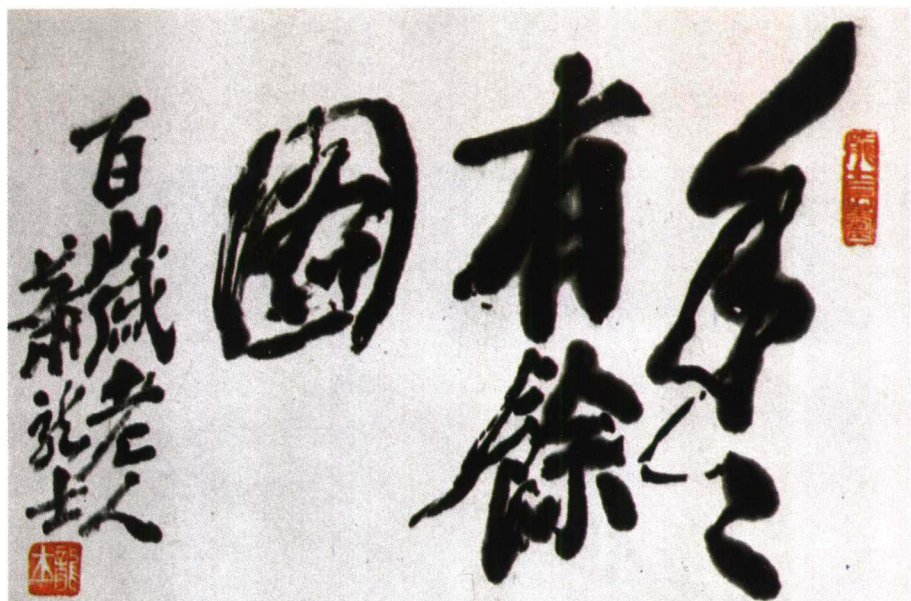 年々
有餘
圖
百歲老人
蕭龍士